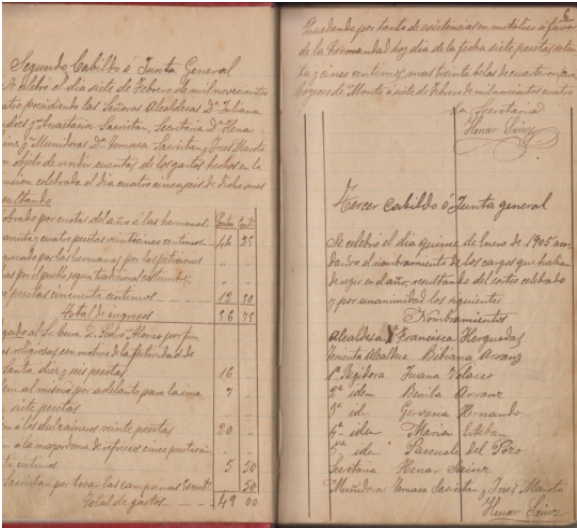 Segundo Cabildo ó Junta General
Se celebró el dia siete de Febrero de mil novecientos
cuatro, presidiendo las Señoras Alcaldesas Dª Juliana
y Anastasia Sacristan, Secretaria Dª Hena
y Munidoras Dª Tomasa Sacristan y Ines Maroto
objeto de rendir cuentas de los gastos hechos en la
celebrada el dia cuatro cinco y seis de dicho mes
resultando
cobrado por cuotas del año a las hermanas,
cuarenta y cuatro pesetas veinticinco centimos 44 25
por las hermanas por las peticiones " "
por el pueblo segun tradicional costumbre, " "
pesetas cincuenta centimos 12 50
Total de ingresos 56 75
pagado al Sr. Cura D. Pedro Alonso por
religiosas con motivo de la festividad de
Santa diez y seis pesetas 16 "
al mismo por adelanto para la
siete pesetas 7 "
a los dulzaineros veinte pesetas 20 "
a la mayordoma de refrescos cinco pesetas
centimos 5 50
Sacristan por tocar las campanas 50 cent 50
Total de gastos 49 00
6
Quedando por tanto de existencias en metalico a favor
de la hermandad hoy dia de la fecha siete pesetas seten
ta y cinco centimos, mas treinta belas de cuarteron
de Monte a siete de Febrero de mil novecientos cuatro
La Secretaria
Henar Sainz
Tercer Cabildo ó Junta general
Se celebró el dia quince de Enero de 1905 acor
dando el nombramiento de los cargos que habian
de regir en el año, resultando del sorteo celebrado
y por unanimidad los siguientes
Nombramientos
Alcaldesa Francisca Herguedas
Teniente Alcaldesa Bibiana Arranz
1ª Regidora Juana Velasco
2ª idem Benita Arranz
3ª id Gervasia Hernando
4ª idem Maria Esteban
5ª idem Pascuala del Pozo
Secretaria Henar Sainz
Muñidoras Tomasa Sacristan y Ines Maroto
Henar Sainz